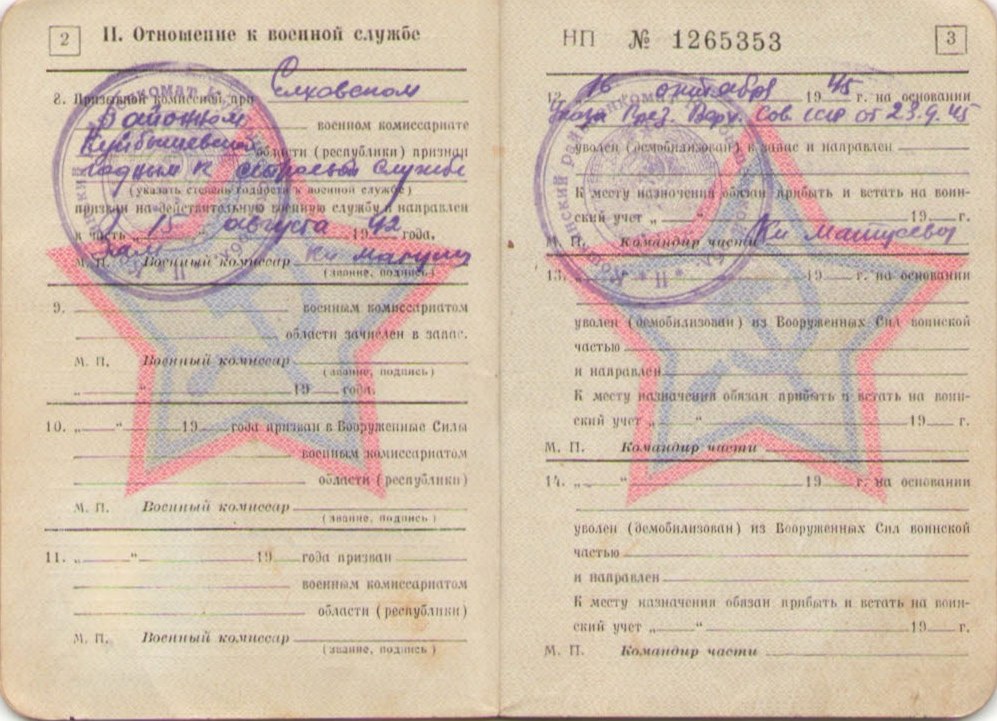 2
II. Отношение к военной службе
8. Призывной комиссией при Елховском
Районном военном комиссариате
Куйбышевской области (республики) признан
годным к строевой службе
(указать степень годности к военной службе)
призван на действительную военную службу и направлен
в часть „ 15 “ августа 1942 года.
М. П. Военный комиссар
(звание, подпись)
9. военным комиссариатом
области зачислен в запас.
М. П. Военный комиссар
(звание, подпись)
„ “ 19 года.
10. „ “ 19 года призван в Вооруженные Силы
военным комиссариатом
области (республики)
М. П. Военный комиссар
(звание, подпись)
11. „ “ 19 года призван
военным комиссариатом
области (республики)
М. П. Военный комиссар
(звание, подпись)
НП № 1265353
3
12. 16 октября 1945 г. на основании
Указа През. Верх. Сов. СССР от 23.9.45
уволен (демобилизован) в запас и направлен
К месту назначения обязан прибыть и встать на воин-
ский учет „ “ 19 г.
М. П. Командир части
13. „ “ 19 г. на основании
уволен (демобилизован) из Вооруженных Сил воинской
частью
и направлен
К месту назначения обязан прибыть и встать на воин-
ский учет „ “ 19 г.
М. П. Командир части
14. „ “ 19 г. на основании
уволен (демобилизован) из Вооруженных Сил воинской
частью
и направлен
К месту назначения обязан прибыть и встать на воин-
ский учет „ “ 19 г.
М. П. Командир части